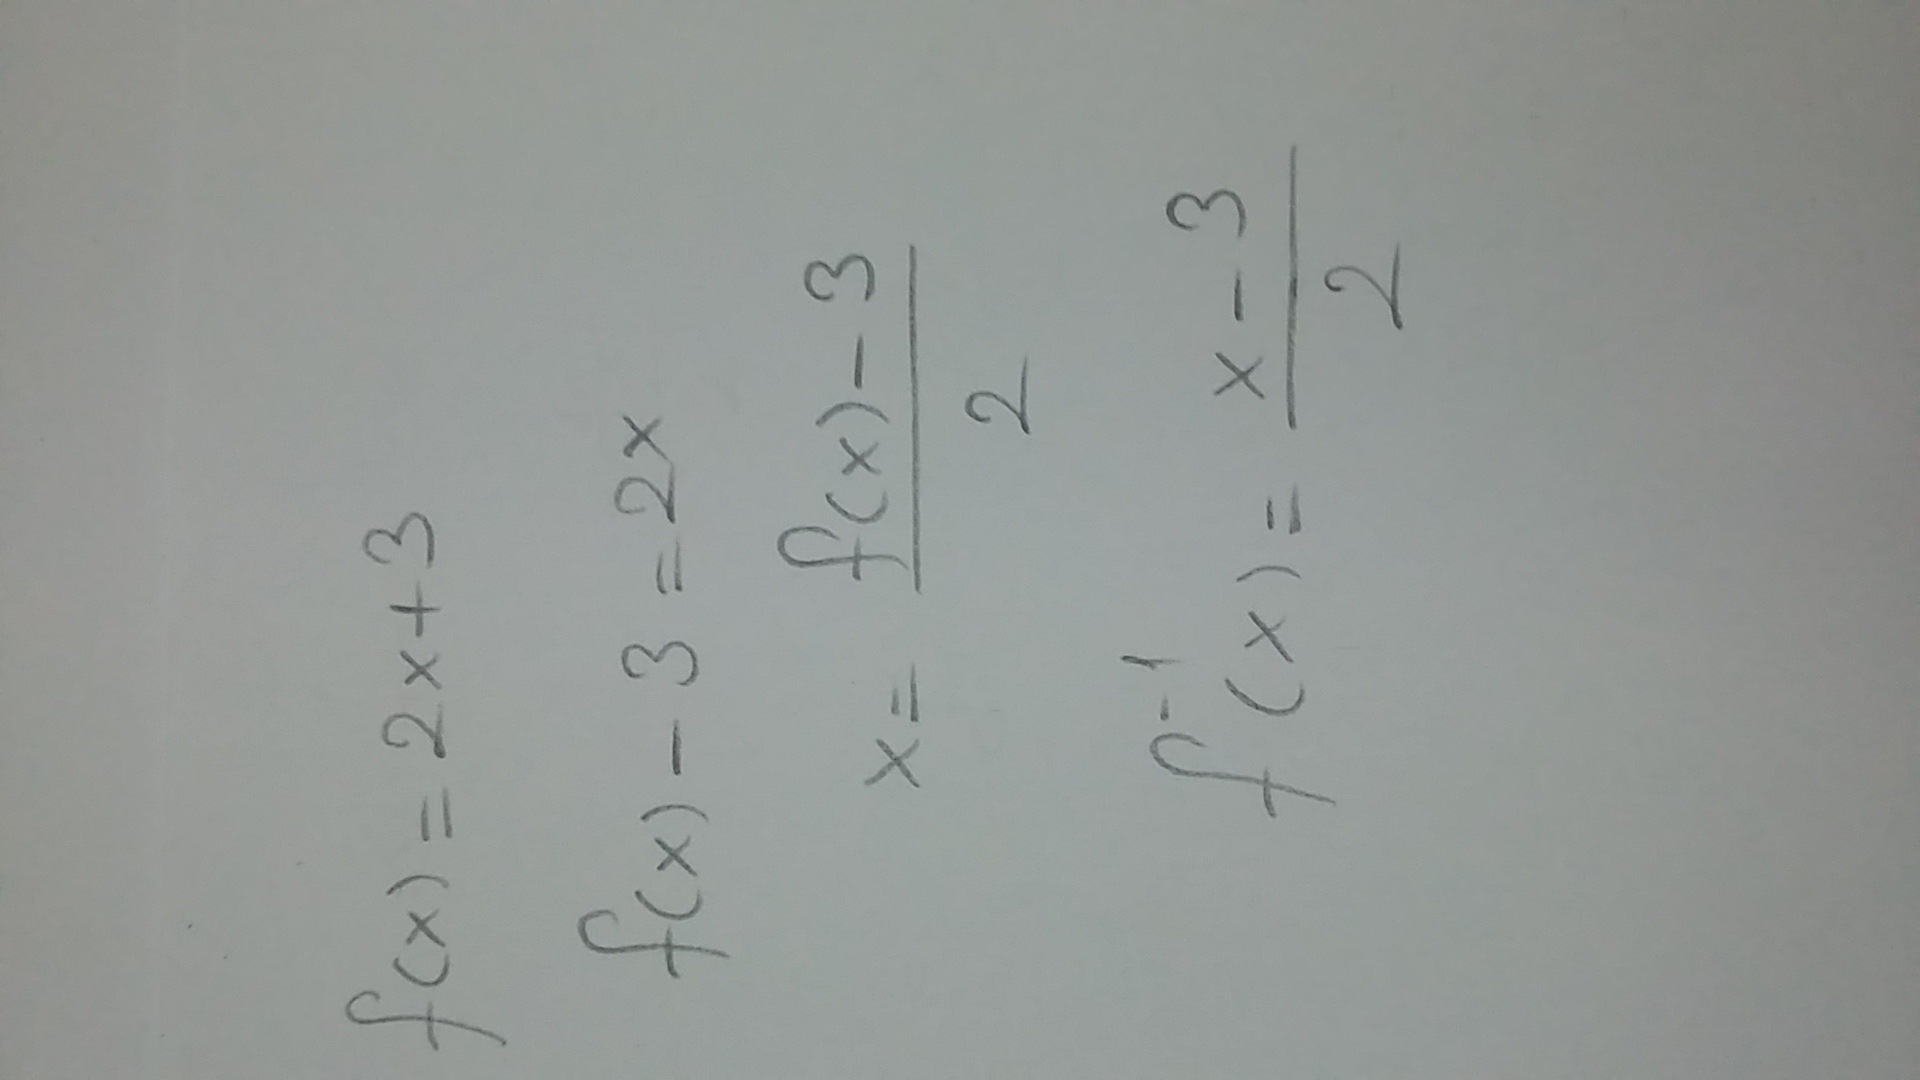 f(x) = 2x+3
f(x) - 3 = 2x
x = \frac{f(x)-3}{2}
f^{-1}(x) = \frac{x-3}{2}